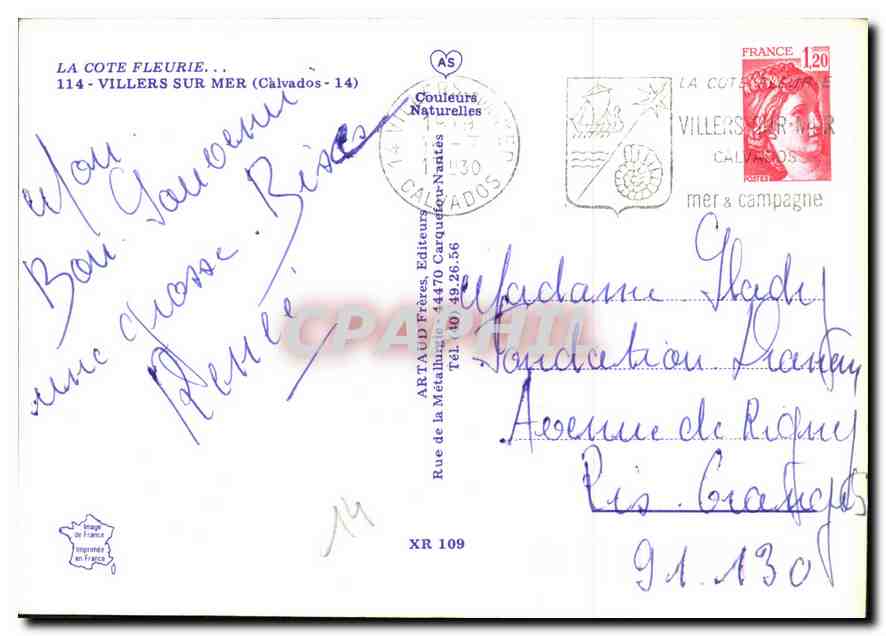 LA COTE FLEURIE...
114 - VILLERS SUR MER (Calvados - 14)
Mon
Bon Souvenir
une grosse Bise
Renée
AS
Couleurs
Naturelles
14 VILLERS-SUR-MER
CALVADOS
LA COTE FLEURIE
VILLERS-SUR-MER
CALVADOS
mer & campagne
FRANCE 1,20
POSTES
ARTAUD Frères, Editeurs
Rue de la Métallurgie - 44470 Carquefou-Nantes
Tél. (40) 49.26.56
CPAPHIL
Madame Glady
Fondation
Avenue de Rigny
Ris Orangis
91.130
14
XR 109
Image
de France
Imprimée
en France